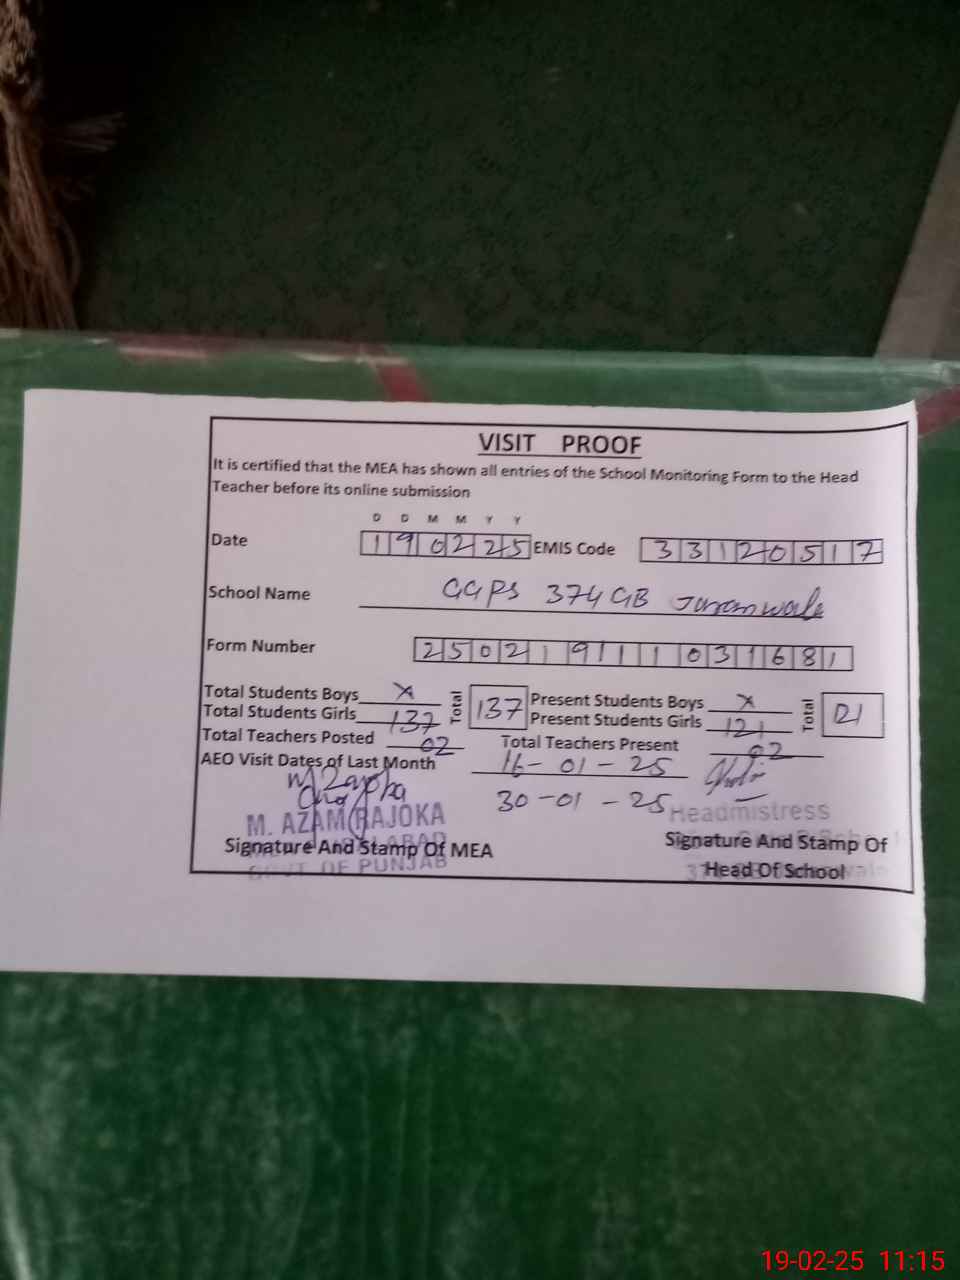 VISIT PROOF
It is certified that the MEA has shown all entries of the School Monitoring Form to the Head
Teacher before its online submission
D D M M Y Y
Date 190225 EMIS Code 33120517
School Name GGPS 374 GB Jaranwala
Form Number 250219111031681
Total Students Boys X Total 137 Present Students Boys X Total 121
Total Students Girls 137 Present Students Girls 121
Total Teachers Posted 02 Total Teachers Present 02
AEO Visit Dates of Last Month 16-01-25
30-01-25
Headmistress
M. AZAM RAJOKA
Signature And Stamp Of MEA
GOVT OF PUNJAB
Signature And Stamp Of
Head Of School
19-02-25 11:15